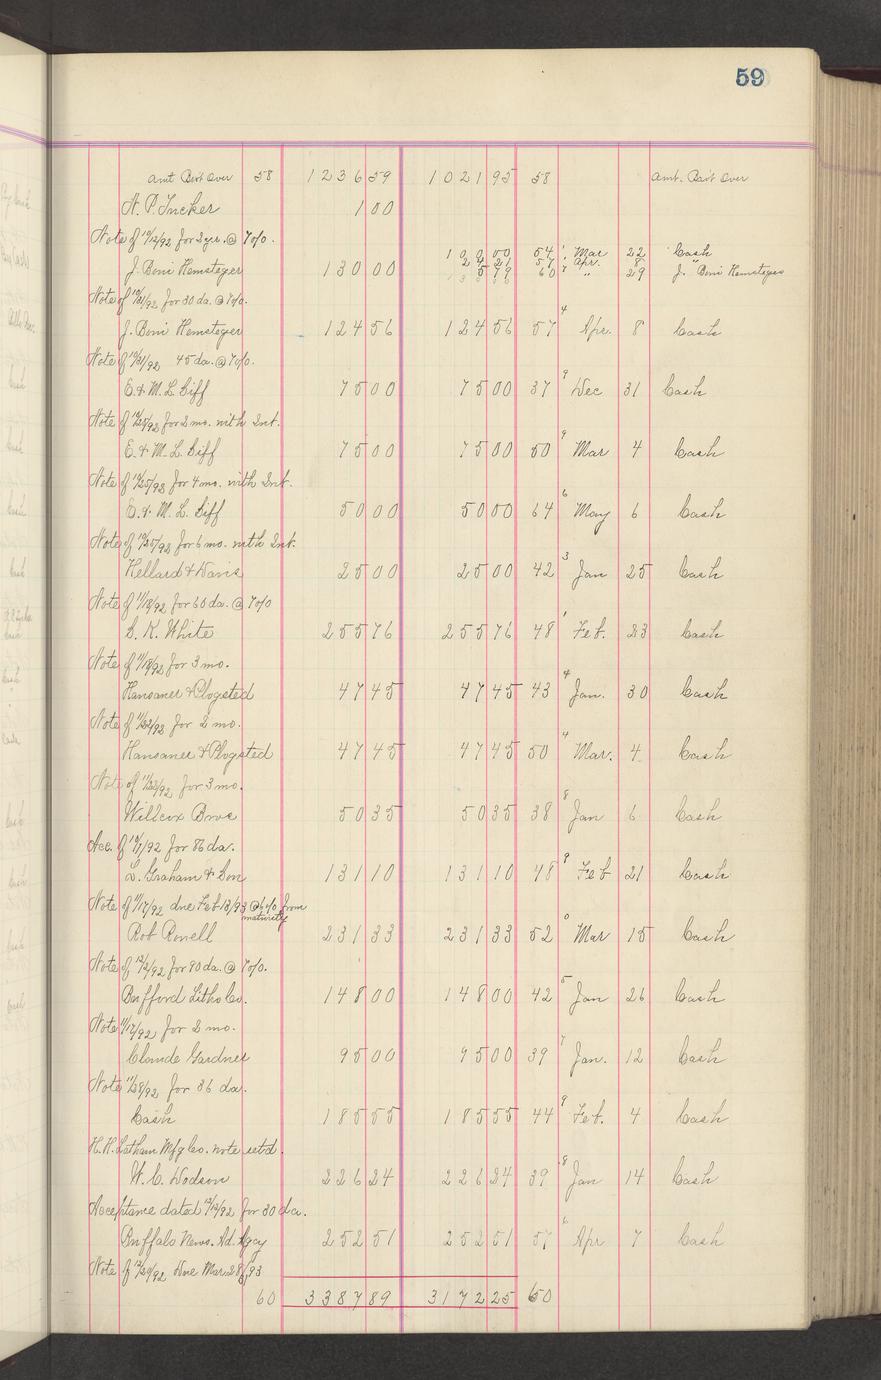 59
Amt Brot Over 58 1236 59 1021 95 58 Amt. Brot Over
H. P. Tucker 1 00
Note of 10/12/92 for 2 yr. @ 7 o/o.
100 00 54 Mar 22 Cash
24 21 57 Apr. 8 "
J. Boni Hemsteger 130 00 5 79 60 " 29 J. Boni Hemsteger
Note of 10/21/92 for 30 da. @ 7 o/o.
J. Boni Hemsteger 124 56 124 56 57 4 Apr. 8 Cash
Note of 10/21/92 45 da. @ 7 o/o.
E. & M. L. Giff 75 00 75 00 37 9 Dec 31 Cash
Note of 10/25/92 for 2 mo. with Int.
E. & M. L. Giff 75 00 75 00 50 9 Mar 4 Cash
Note of 10/25/92 for 4 mo. with Int.
E. & M. L. Giff 50 00 50 00 64 6 May 6 Cash
Note of 10/25/92 for 6 mo. with Int.
Hellard & Davis 25 00 25 00 42 3 Jan 25 Cash
Note of 11/18/92 for 60 da. @ 7 o/o
G. K. White 255 76 255 76 48 1 Feb. 23 Cash
Note of 11/18/92 for 3 mo.
Hansaner & Plogsted 47 45 47 45 43 4 Jan. 30 Cash
Note of 11/22/92 for 2 mo.
Hansaner & Plogsted 47 45 47 45 50 4 Mar. 4 Cash
Note of 11/22/92 for 3 mo.
Willcox Bros 50 35 50 35 38 8 Jan 6 Cash
Acc. of 10/7/92 for 86 da.
L. Graham & Son 131 10 131 10 48 9 Feb 21 Cash
Note of 11/17/92 due Feb 18/93 @ 6 o/o from
maturity
Rob Rowell 231 33 231 33 52 0 Mar 15 Cash
Note of 12/2/92 for 90 da. @ 7 o/o.
Bufford Litho Co. 148 00 148 00 42 5 Jan 26 Cash
Note 11/17/92 for 2 mo.
Claude Gardner 95 00 95 00 39 7 Jan. 12 Cash
Note 11/28/92 for 36 da.
Cash 185 55 185 55 44 9 Feb. 4 Cash
H. H. Latham Mfg Co. note retd.
W. C. Dodson 226 24 226 24 39 8 Jan 14 Cash
Acceptance dated 12/12/92 for 30 da.
Buffalo News. Ad. Agcy 252 51 252 51 57 6 Apr 7 Cash
Note of 12/20/92 Due Mar 28/93
60 3387 89 3172 25 60